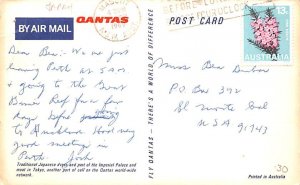 JAPAN
BY AIR MAIL
QANTAS
Dear Bea: We are just
leaving Perth at 5AM
& going to the Great
Reef for a few
days before
to Auckland. Had very
good meeting in
Perth
Traditional Japanese dolls and part of the Imperial Palace and
moat in Tokyo, another port of call on the Qantas world-wide
network.
FLY QANTAS - THERE'S A WORLD OF DIFFERENCE
POST CARD
BEFORE
YOUR CLOCK
13c
AUSTRALIA
Miss Bea
PO Box 392
El Monte Cal
USA 91743
30
Printed in Australia